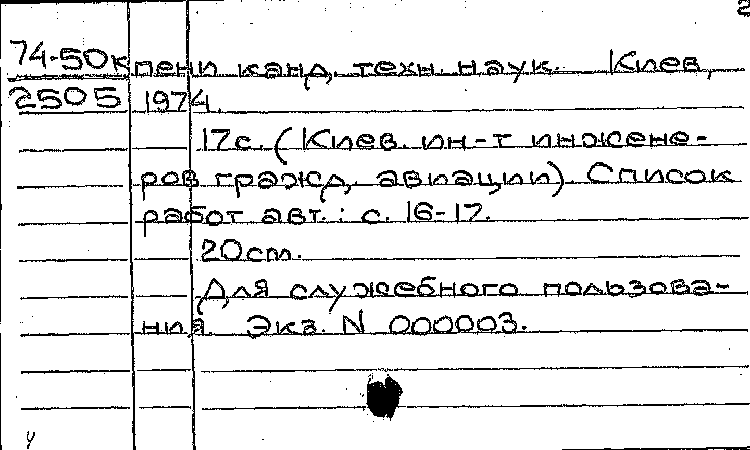 2
74-50к пени канд. техн. наук. Киев,
2505 1974.
17с. (Киев. ин-т инжене-
ров гражд. авиации). Список
работ авт.: с. 16-17.
20см.
Для служебного пользова-
ния. Экз. N 000003.